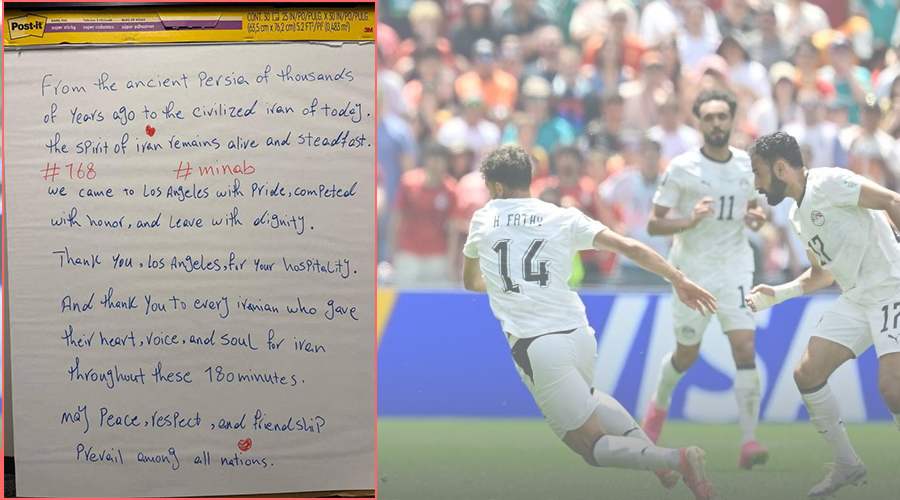 Post-it
super sticky
super cubiertas
super adhésives
CONT. 30
25 IN/PO/PULG. X 30 IN/PO/PULG
(63,5 cm x 76,2 cm) 5.2 FT²/PI² (0,483 m²)
3M
From the ancient Persia of thousands
of Years ago to the civilized iran of today.
the spirit of iran remains alive and steadfast.
#168 #minab
we came to Los Angeles with Pride, competed
with honor, and Leave with dignity.
Thank You, Los Angeles, for Your hospitality.
And thank You to every iranian who gave
their heart, voice, and soul for iran
throughout these 180 minutes.
may Peace, respect, and friendship
Prevail among all nations.
H. FATHY
14
11
1
17
17
VISA